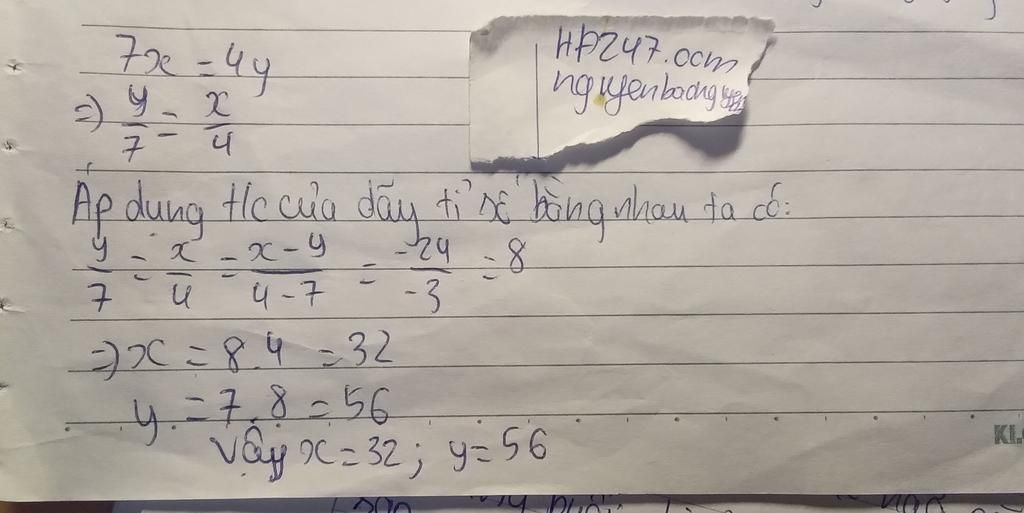 7x = 4y
=> y/7 = x/4
HP247.com
nguyenbaong
Áp dụng t/c của dãy tỉ số bằng nhau ta có:
y/7 = x/4 = x-y/4-7 = -24/-3 = 8
=> x = 8.4 = 32
y = 7.8 = 56
Vậy x = 32; y = 56